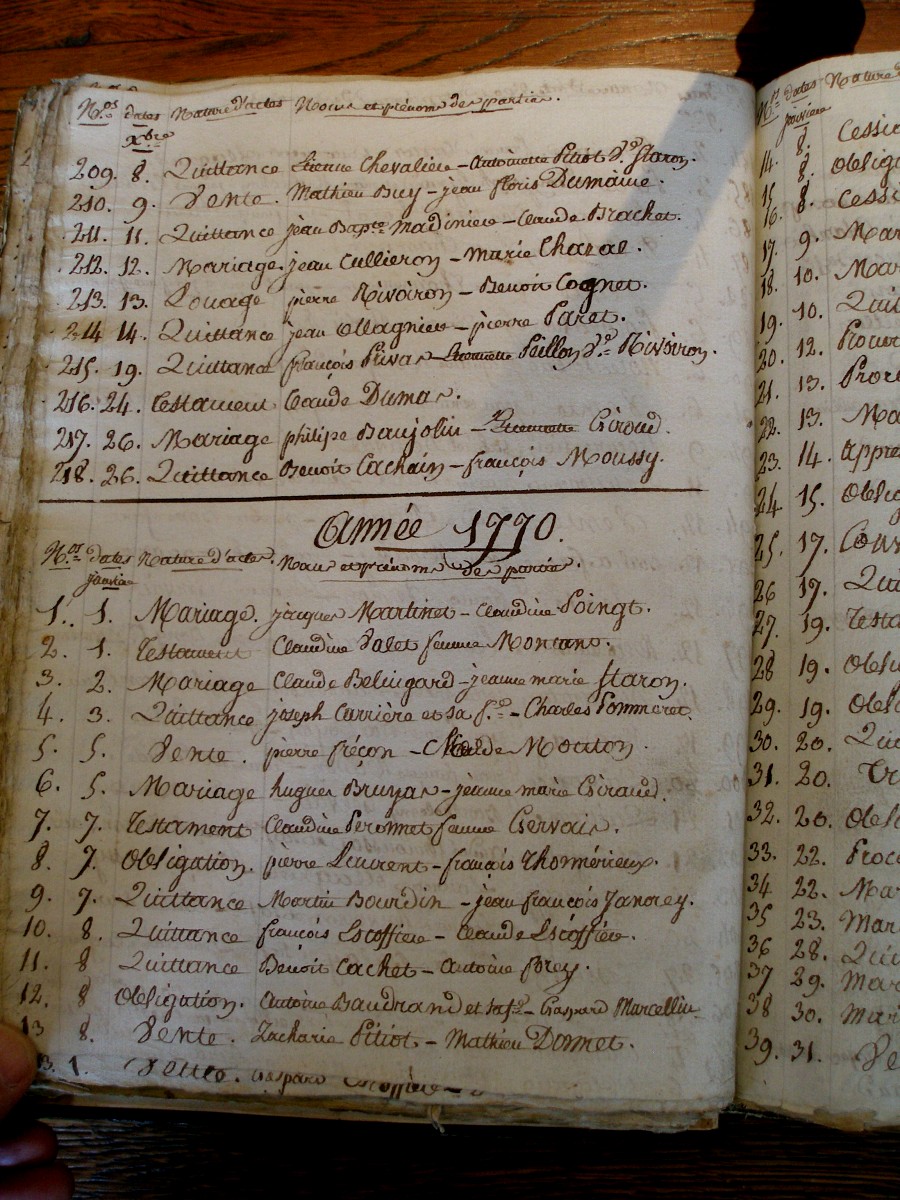 N.os dates Nature d'actes Noms et prénoms des parties.
Xbre
209. 8. Quittance Etienne Chevalière - Antoinette Pitiot Vve Staron.
210. 9. Vente. Mathieu Buy - jean floris Dumaine.
211. 11. Quittance jean Bapte Madinière - Claude Brachet.
212. 12. Mariage. jean Cullieron - Marie Chazal.
213. 13. Louage pierre Rivoiron - Benoit Cognet.
214 14. Quittance jean Ollagnière - pierre Paret.
215. 19. Quittance françois Privas - Peillon Rivoiron.
216. 24. testament Claude Dumas.
217. 26. Mariage philipe Baujolin - Giroud.
218. 26. Quittance Benoit Cachain - françois Moussy.
Année 1770.
N.os dates Nature d'actes. Noms et prénoms des parties.
janvier
1. 1. Mariage. jacques Martinet - Claudine Poingt.
2. 1. testament Claudine Valet femme Montant.
3. 2. Mariage Claude Belingard - jeanne marie Staron.
4. 3. Quittance joseph Carrière et sa f.e - Charles Pommeret.
5. 5. Vente. pierre fréçon - Claude Mouton.
6. 5. Mariage hugues Bruyas - jeanne marie Giraud.
7. 7. testament Claudine Peronnet femme Gervais.
8. 7. Obligation. pierre Laurent - françois thomérieux.
9. 7. Quittance Martin Bourdin - jean françois Janorey.
10. 8. Quittance françois Escoffière - Claude Escoffière.
11. 8 Quittance Benoit Cachet - Antoine forey.
12. 8 Obligation. Antoine Baudrand et sa fe - Gaspard Marcellin.
13 8. Vente. Zacharie Pitiot - Mathieu Donnet.
13. 1. Vente. Gaspard Escoffière -
N.os dates Nature d
janvier
14. 8. Cessio
15. 8. Oblig
16. 8. Cessi
17. 9. Mar
18. 10. Mar
19. 10. Quit
20. 12. Procur
21. 13. Proc
22. 13. Ma
23. 14. Appre
24 15. Oblig
25. 17. Conv
26 17. Qui
27. 19. testa
28 19. Obli
29. 19. Obli
30. 20. Qui
31. 20. Tr
32. 20. Obl
33. 22. Proc
34 22. Mar
35 23. Mar
36 28. Qui
37 29. Mar
38 30. Mari
39. 31. Ve